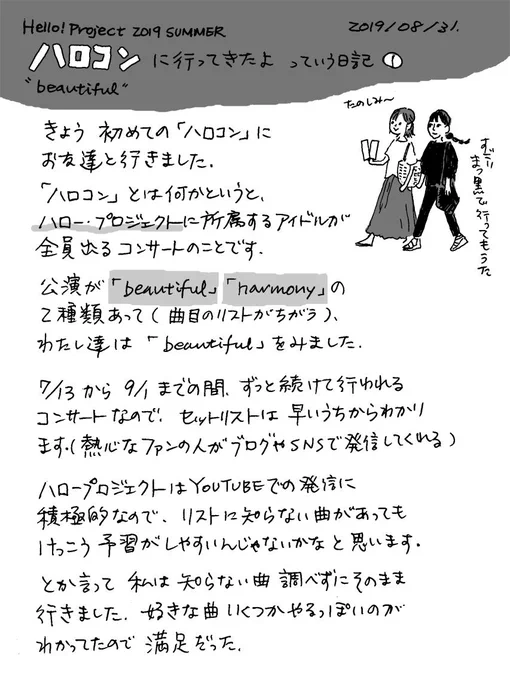 Hello! Project 2019 SUMMER
2019/08/31.
ハロコン に行ってきたよ っていう日記 ①
"beautiful"
たのしみ〜
まっ黒で行ってもうた
きょう 初めての「ハロコン」に
お友達と行きました.
「ハロコン」とは何かというと、
ハロー・プロジェクトに所属するアイドルが
全員出るコンサートのことです.
公演が「beautiful」「harmony」の
2種類あって(曲目のリストがちがう)、
わたし達は「beautiful」をみました.
7/13から 9/1 までの間、ずっと続けて行われる
コンサートなので、セットリストは 早いうちからわかり
ます.(熱心なファンの人がブログやSNSで発信してくれる)
ハロープロジェクトはYOUTUBEでの発信に
積極的なので、リストに知らない曲があっても
けっこう 予習がしやすいんじゃないかなと思います.
とか言って 私は 知らない曲 調べずにそのまま
行きました. 好きな曲いくつかやるっぽいのが
わかってたので 満足だった.